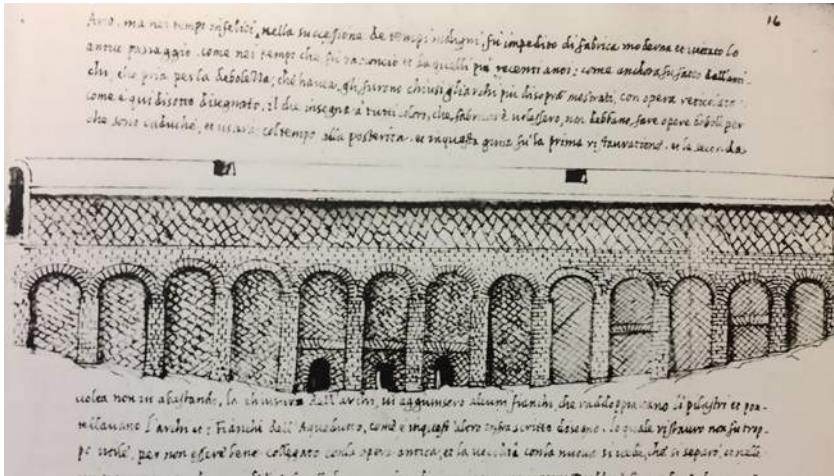 16
Arco, ma nei tempi infelici, nella successione de tempi indegni fu impedito di fabrica moderna et vietato lo
antico passaggio, come nei tempo che fu et da quelli piu recenti anoi; come anchora fu fatto dall'anti-
chi, che pria per la debolezza, che havea, gli furono chiusi gli archi piu disopra mostrati, con opera reticolata
come è qui disotto disegnato, il che insegna à tutti coloro, che fabricare volessero, non debbano fare opere deboli per
che sono caduche, et usara col tempo alla posterita. et in questa guisa fu la prima ristauratione. et la seconda
volta non vi abastando, la chiusura dell'archi, vi aggiunsero alcuni fianchi, che raddoppiavano li pilastri et
l'archi et i fianchi dell'Aquedutto, come è in quest'altro infrascritto disegno. lo quale ristauro non fu trop-
po utile, per non essere bene collegato con la opera antica, et la vecchia con la nuova si vede, che si separò, et nelle